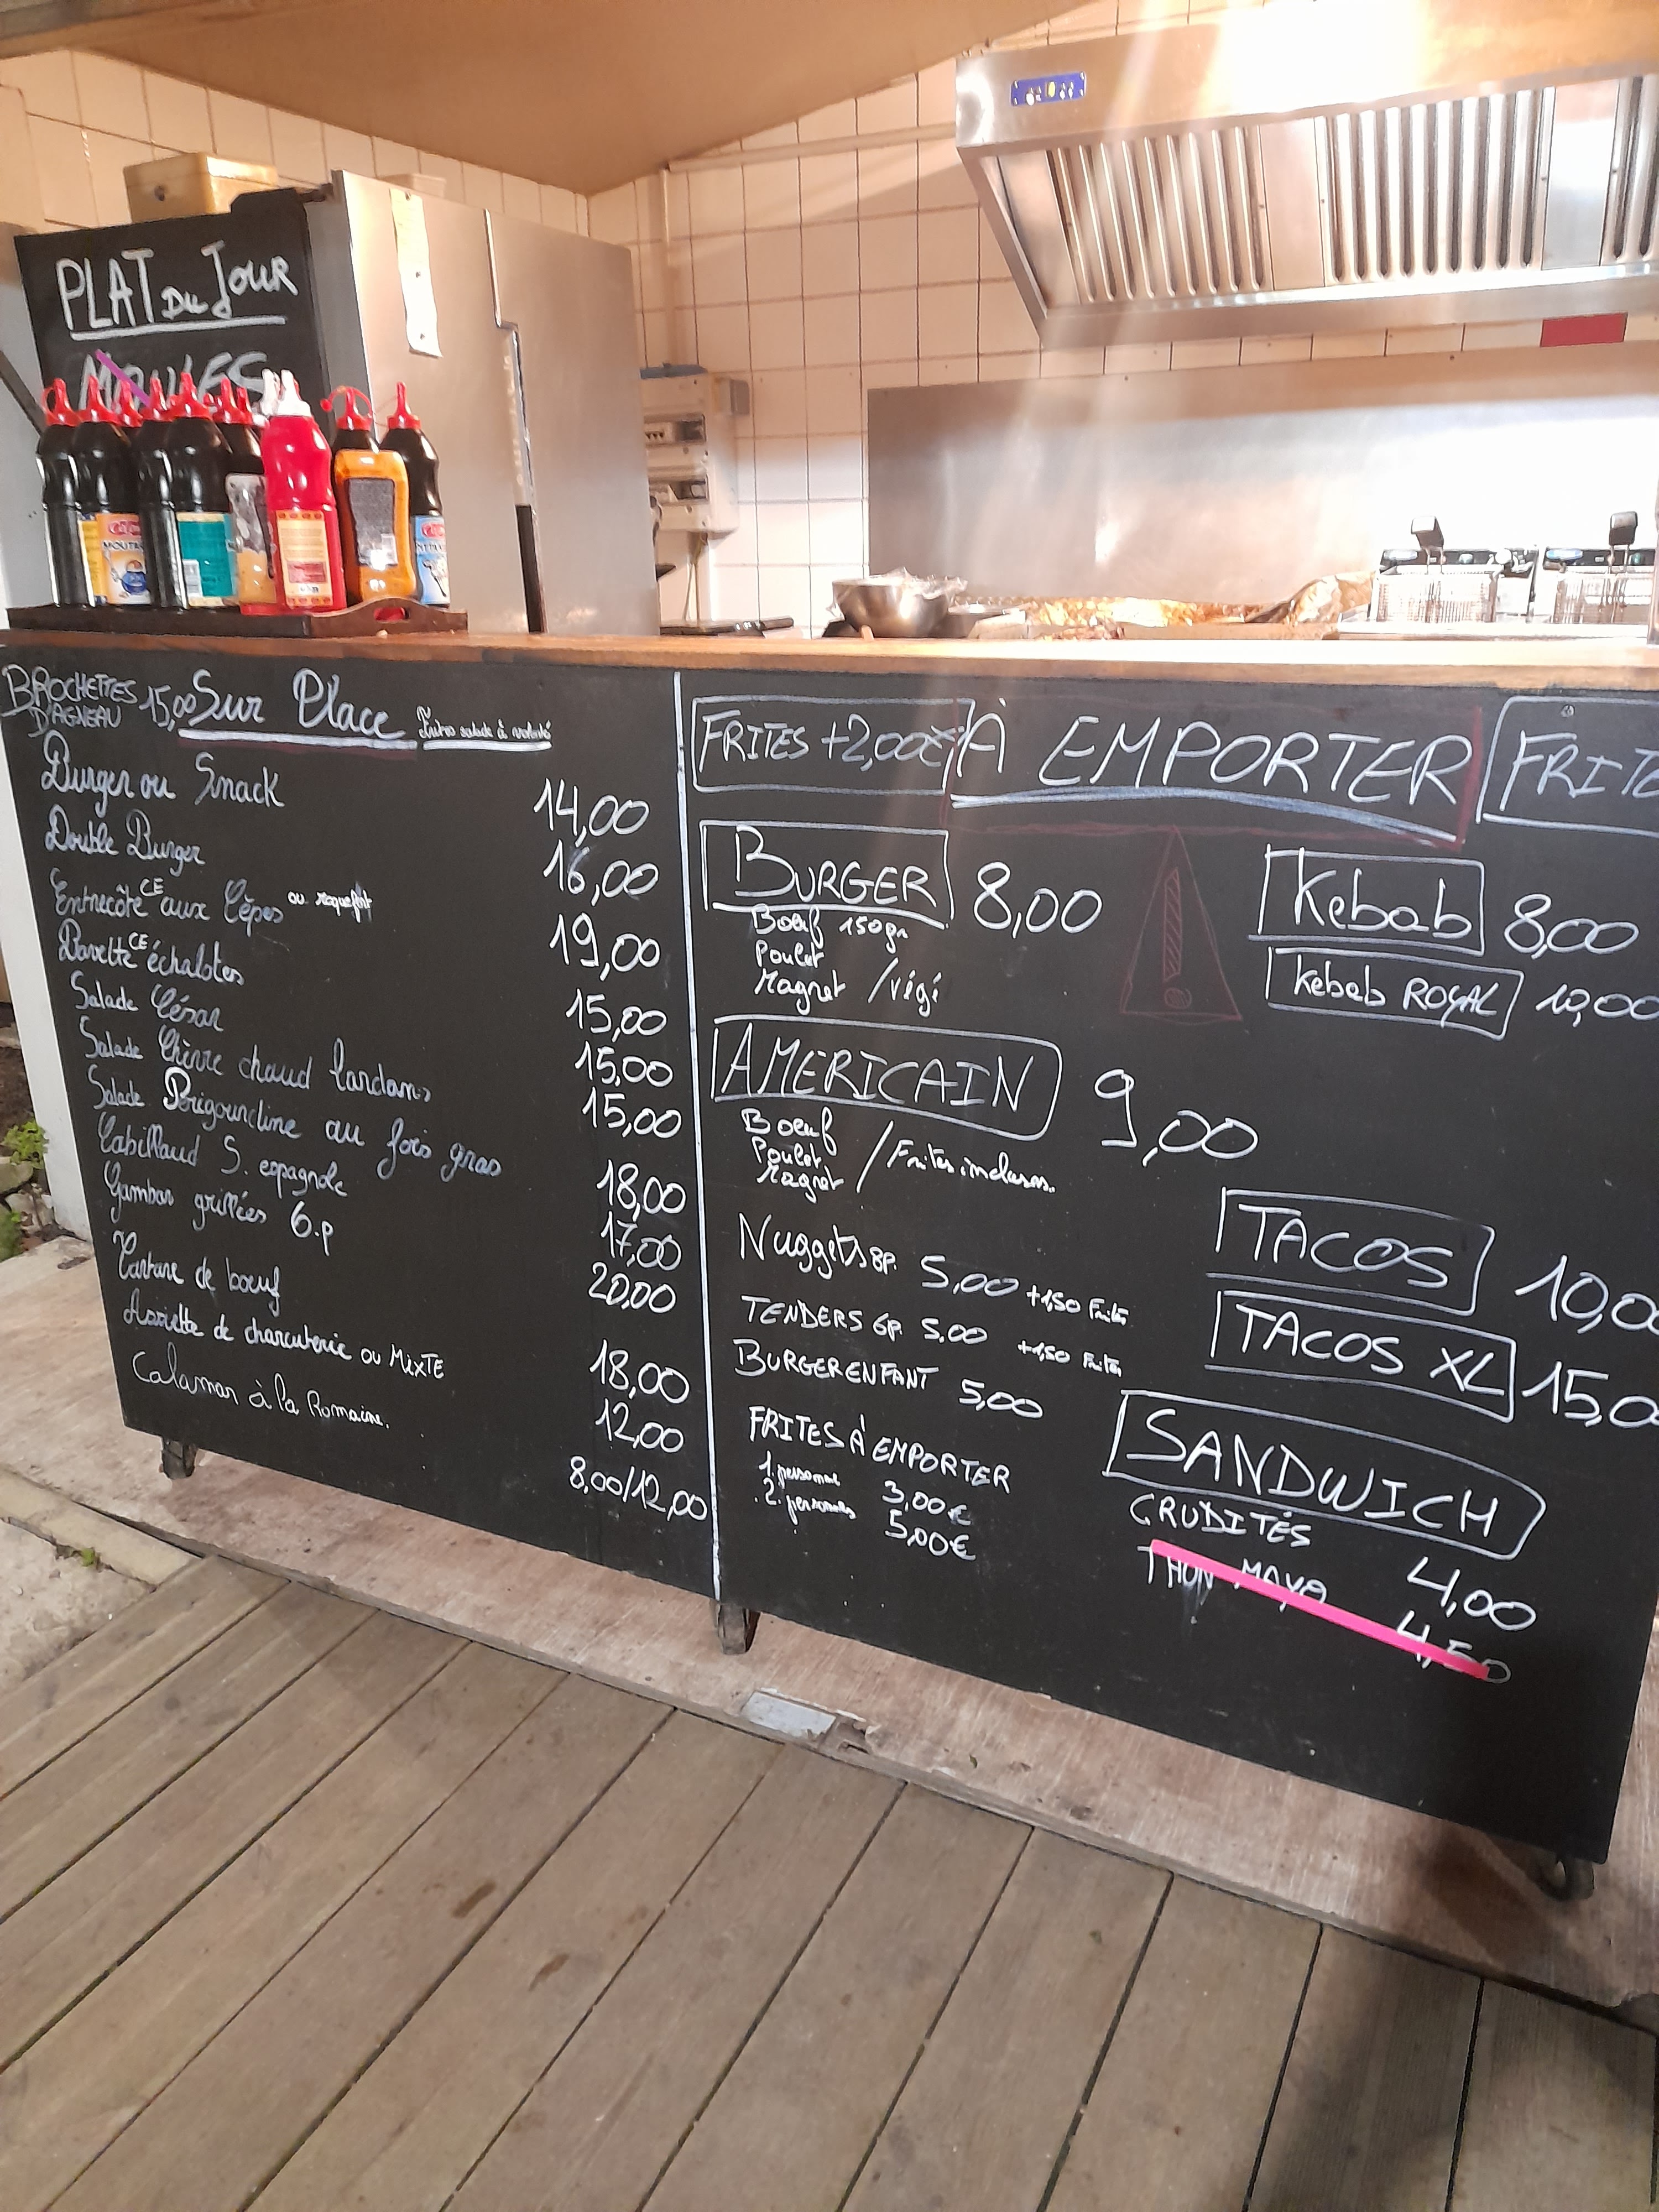 PLAT DU JOUR
MOULES
BROCHETTES
D'AGNEAU 15,00
Sur Place
Frites salade à volonté
Burger ou Snack 14,00
Double Burger 16,00
Entrecôte CE aux Cèpes ou roquefort 19,00
Bavette CE échalotes 15,00
Salade César 15,00
Salade Chèvre chaud lardons 15,00
Salade Périgourdine au fois gras 18,00
Cabillaud S. espagnole 17,00
Gambas grillées 6.p 20,00
Tartare de boeuf 18,00
Assiette de charcuterie ou MIXTE 12,00
Calamar à la Romaine. 8,00/12,00
FRITES +2,00€
À EMPORTER
FRITE
BURGER 8,00
Boeuf 150gr
Poulet
Magret /végi
Kebab 8,00
Kebab ROYAL 10,00
AMERICAIN 9,00
Boeuf
Poulet
Magret / Frites incluses.
Nuggets 8P. 5,00 +1,50 Frites
TENDERS 6P. 5,00 +1,50 Frites
BURGER ENFANT 5,00
FRITES À EMPORTER
1. personne 3,00€
2. personnes 5,00€
TACOS 10,00
TACOS XL 15,0
SANDWICH
CRUDITÉS 4,00
THON MAYO 4,50